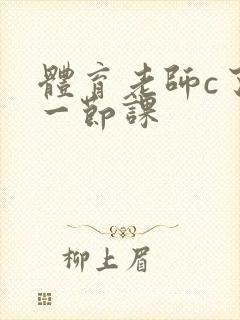 體育老師c了
一節課
柳上眉